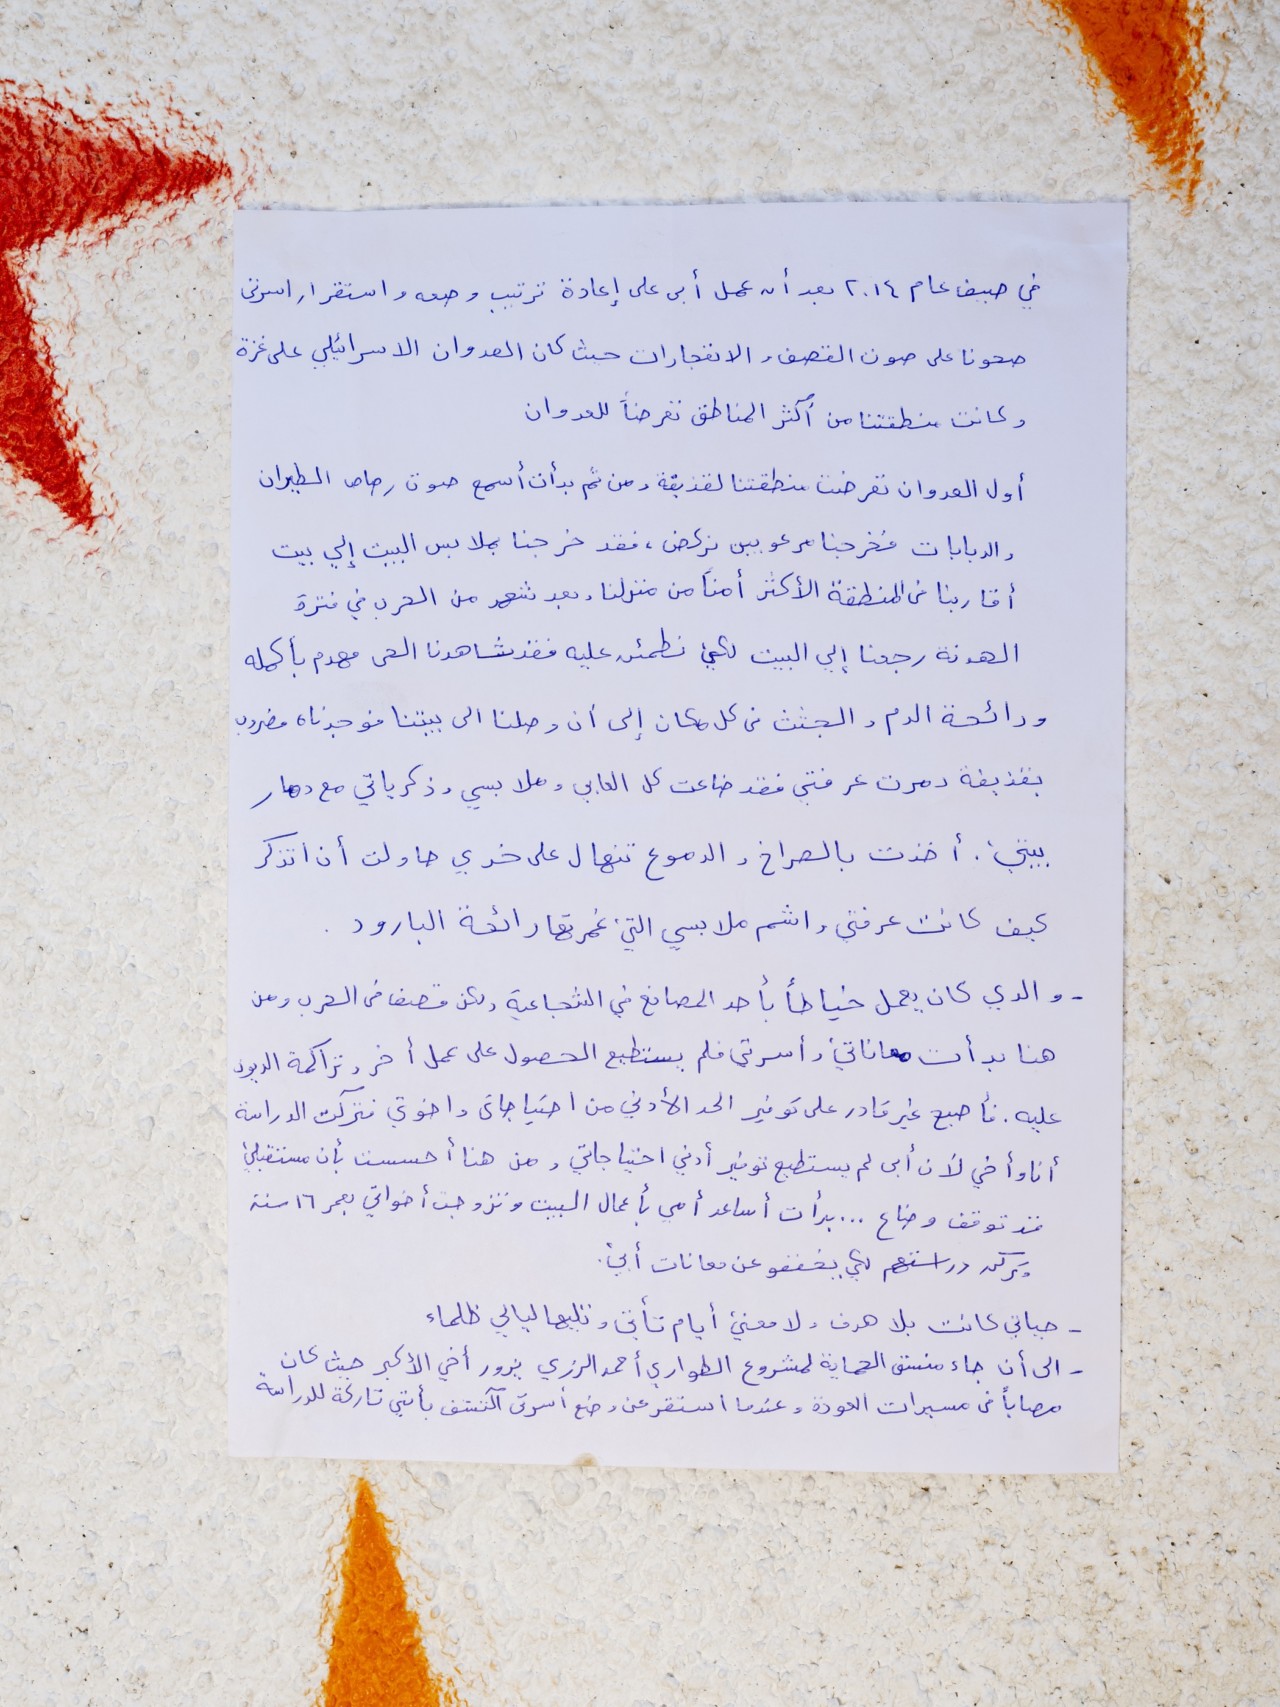 في صيف عام ٢٠١٤ بعد أن عمل أبي على إعادة ترتيب وضعه واستقرار اسرتي
صحونا على صوت القصف والانفجارات حيث كان العدوان الاسرائيلي على غزة
وكانت منطقتنا من أكثر المناطق تعرضاً للعدوان
أول العدوان تعرضت منطقتنا لقذيفة ومن ثم بدأت أسمع صوت رصاص الطيران
والدبابات فخرجنا مرعوبين نركض، فقد خرجنا بملابس البيت إلي بيت
أقاربنا في المنطقة الأكثر أمناً من منزلنا وبعد شهر من الحرب في فترة
الهدنة رجعنا إلي البيت لكي نطمئن عليه فقد شاهدنا الحى مهدم بأكمله
ورائحة الدم والجثث في كل مكان إلى أن وصلنا الى بيتنا فوجدناه مضروب
بقذيفة دمرت غرفتي فقد ضاعت كل العابي وملابسي وذكرياتي مع دمار
بيتي. أخذت بالصراخ والدموع تنهال على خدي حاولت أن اتذكر
كيف كانت غرفتي واشم ملابسي التي غمرتها رائحة البارود.
- والدي كان يعمل خياطاً بأحد المصانع في الشجاعية ولكن قصف في الحرب ومن
هنا بدأت معاناتي وأسرتي فلم يستطيع الحصول على عمل أخر وتراكمة الديون
عليه. فأصبح غير قادر على توفير الحد الأدني من احتياجاتى واخوتي فتركت الدراسة
أنا وأخي لأن أبى لم يستطيع توفير أدني احتياجاتي ومن هنا أحسست بأن مستقبلي
قد توقف وضاع ... بدأت أساعد أمي بأعمال البيت وتزوجت أخواتي بعمر ١٦ سنة
وتركن دراستهم لكي يخففو عن معانات أبي.
- حياتي كانت بلا هدف ولا معني أيام تأتى وتليها ليالي ظلماء
- الى أن جاء منسق الحماية لمشروع الطواري أحمد الرزي يزور أخي الأكبر حيث كان
مصاباً في مسيرات العودة وعندما استفر عن وضع أسرتي اكتشف بأنني تاركة للدراسة